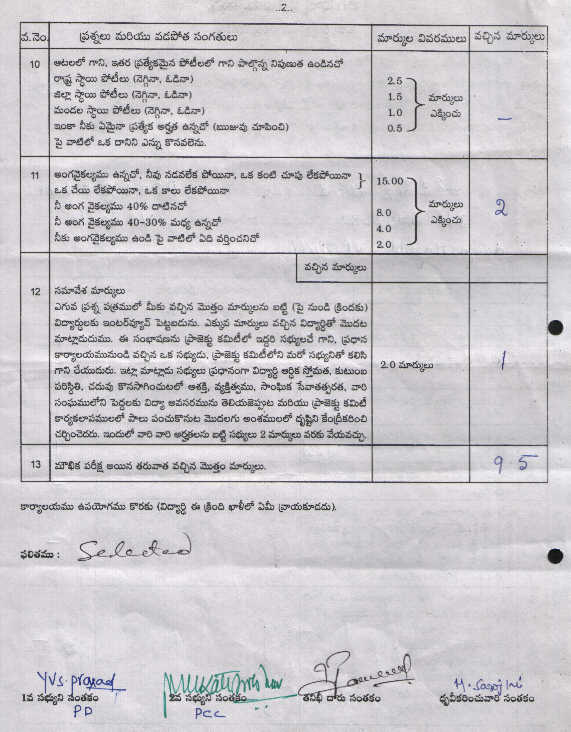 ..2..
వ.నెం. ప్రశ్నలు మరియు వడపోత సంగతులు మార్కుల వివరములు వచ్చిన మార్కులు
10 ఆటలలో గాని, ఇతర ప్రత్యేకమైన పోటీలలో గాని పాల్గొన్న నిపుణుత ఉండినదో
రాష్ట్ర స్థాయి పోటీలు (నెగ్గినా, ఓడినా) 2.5
జిల్లా స్థాయి పోటీలు (నెగ్గినా, ఓడినా) 1.5 మార్కులు
మండల స్థాయి పోటీలు (నెగ్గినా, ఓడినా) 1.0 ఎక్కించు –
ఇంకా నీకు ఏమైనా ప్రత్యేక అర్హత ఉన్నదో (ఋజువు చూపించి) 0.5
పై వాటిలో ఒక దానిని ఎన్ను కొనవలెను.
11 అంగవైకల్యము ఉన్నదో, నీవు నడవలేక పోయినా, ఒక కంటి చూపు లేకపోయినా
ఒక చేయి లేకపోయినా, ఒక కాలు లేకపోయినా 15.00
నీ అంగ వైకల్యము 40% దాటినదో 8.0 మార్కులు 2
నీ అంగ వైకల్యము 40-30% మధ్య ఉన్నదో 4.0 ఎక్కించు
నీకు అంగవైకల్యము ఉండి పై వాటిలో ఏది వర్తించనిదో 2.0
వచ్చిన మార్కులు
12 సమావేశ మార్కులు
ఎగువ ప్రశ్న పత్రములో మీకు వచ్చిన మొత్తం మార్కులను బట్టి (పై నుండి క్రిందకు)
విద్యార్థులకు ఇంటర్‌వ్యూవ్ పెట్టబడును. ఎక్కువ మార్కులు వచ్చిన విద్యార్థితో మొదట
మాట్లాడుదుము. ఈ సంభాషణను ప్రాజెక్టు కమిటీలో ఇద్దరి సభ్యులచే గాని, ప్రధాన
కార్యాలయమునుండి వచ్చిన ఒక సభ్యుడు, ప్రాజెక్టు కమిటీలోని మరో సభ్యునితో కలిసి
గాని చేయుదురు. ఇట్లా మాట్లాడు సభ్యులు ప్రధానంగా విద్యార్థి ఆర్థిక స్తోమత, కుటుంబ 2.0 మార్కులు 1
పరిస్థితి, చదువు కొనసాగించుటలో ఆశక్తి, వ్యక్తిత్వము, సాంఘిక సేవాతత్పరత, వారి
సంఘములోని పెద్దలకు విద్యా అవసరమును తెలియజెప్పుట మరియు ప్రాజెక్టు కమిటీ
కార్యకలాపములలో పాలు పంచుకొనుట మొదలగు అంశములలో దృష్టిని కేంద్రీకరించి
చర్చించెదరు. ఇందులో వారి వారి అర్హతలను బట్టి సభ్యులు 2 మార్కులు వరకు వేయవచ్చు.
13 మౌఖిక పరీక్ష అయిన తరువాత వచ్చిన మొత్తం మార్కులు. 95
కార్యాలయము ఉపయోగము కొరకు (విద్యార్థి ఈ క్రింది ఖాళీలో ఏమీ వ్రాయకూడదు).
ఫలితము : Selected
YVS. Prasad
1వ సభ్యుని సంతకం 2వ సభ్యుని సంతకం తనిఖీ దారు సంతకం ధృవీకరించువారి సంతకం
PD PCC